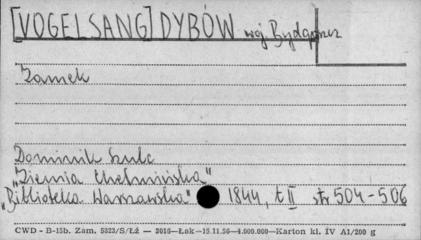 [VOGELSANG] DYBÓW woj. Bydgoszcz
Zamek
Dominik Szulc
"Ziemia Chełmińska"
"Biblioteka Warszawska" 1844, t II str 504-506
CWD - B-15b. Zam. 5323/S/Łź — 3016—Łak—15.11.56—4.000.000—Karton kl. IV A1/200 g